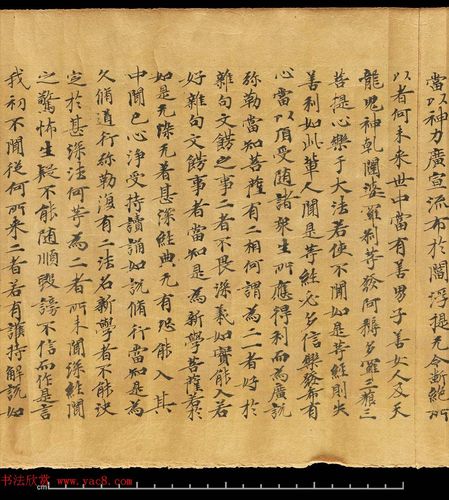 當以神力廣宣流布於閻浮提无令斷絕所
以者何未來世中當有善男子善女人及天
龍鬼神乹闥婆羅剎等發阿耨多羅三藐三
菩提心樂于大法若使不聞如是等經則失
善利如此輩人聞是等經必多信樂發希有
心當以頂受隨諸眾生所應得利而為廣說
弥勒當知菩薩有二相何謂為二一者好於
雜句文餝之事二者不畏深義如實能入若
好雜句文餝事者當知是為新學菩薩若於
如是无染无著甚深經典无有恐能入其
中聞已心淨受持讀誦如說脩行當知是為
久脩道行弥勒復有二法名新學者不能決
定於甚深法何等為二一者所未聞深經聞
之驚怖生疑不能隨順毀謗不信而作是言
我初不聞從何所來二者若有護持解說如
cm
书法欣赏
www.yac8.com